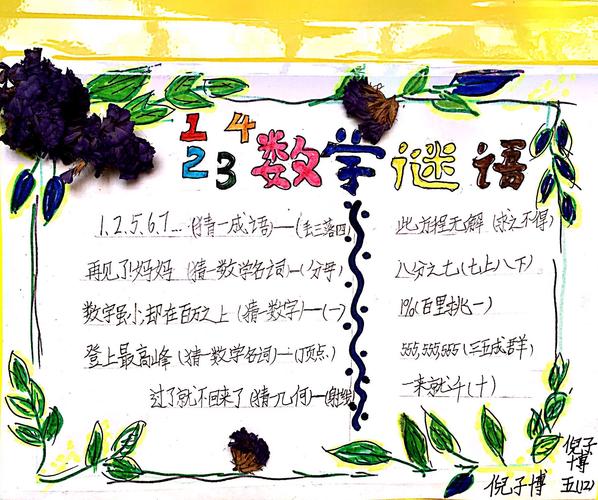 1 2 3 4
数学谜语
1.2.5.6.7...(猜一成语)—(丢三落四)
再见了妈妈(猜一数学名词)—(分母)
数字虽小,却在百万之上(猜一数字)—(一)
登上最高峰(猜一数学名词)—(顶点)
过了就不回来了(猜一几何)—(射线)
此方程无解(求之不得)
八分之七(七上八下)
1%(百里挑一)
555,555,555(三五成群)
一来就千(十)
倪子博
倪子博
五(12)